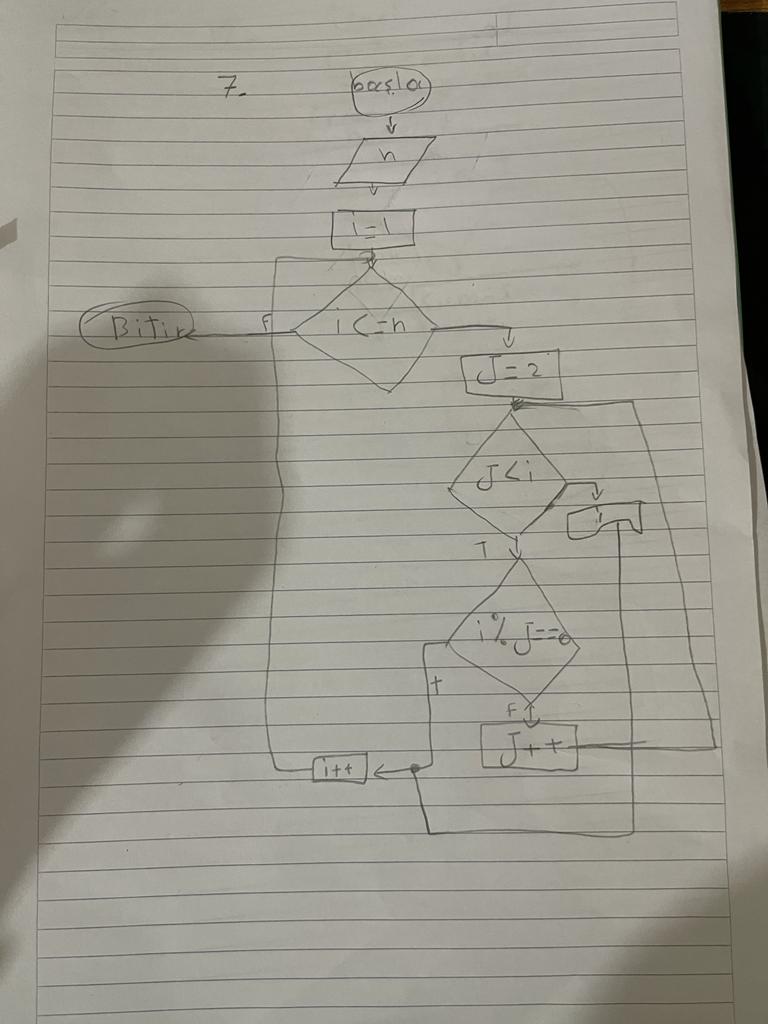 7.
başla
n
i=1
i<=n
F
Bitir
J=2
J<i
i
T
i%J==0
T
F
J++
i++